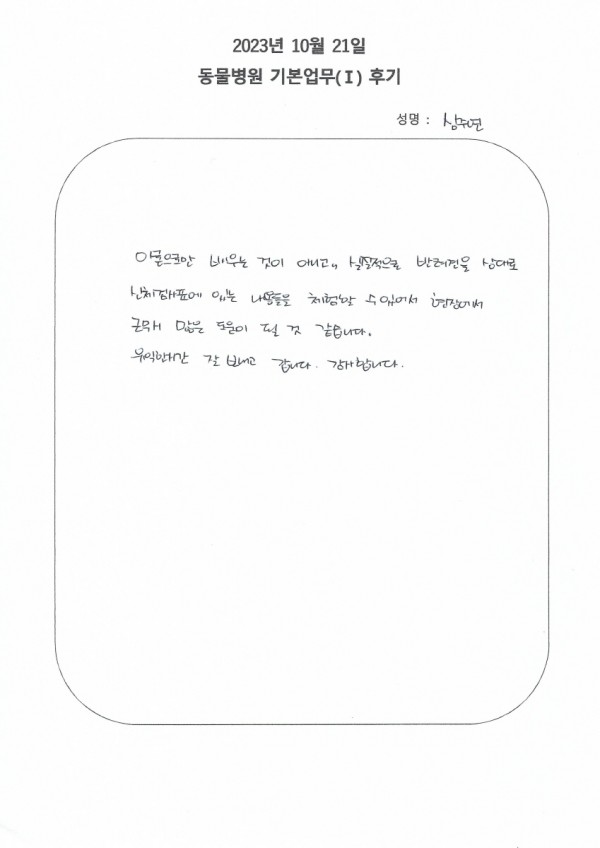 2023년 10월 21일
동물병원 기본업무(I) 후기
성명 : 심주연
이론으로만 배우는 것이 아니고, 실질적으로 반려견을 상대로
신체검사표에 있는 내용들을 체험할 수 있어서 현장에서
근무시 많은 도움이 될 것 같습니다.
유익한시간 잘 보내고 갑니다. 감사합니다.